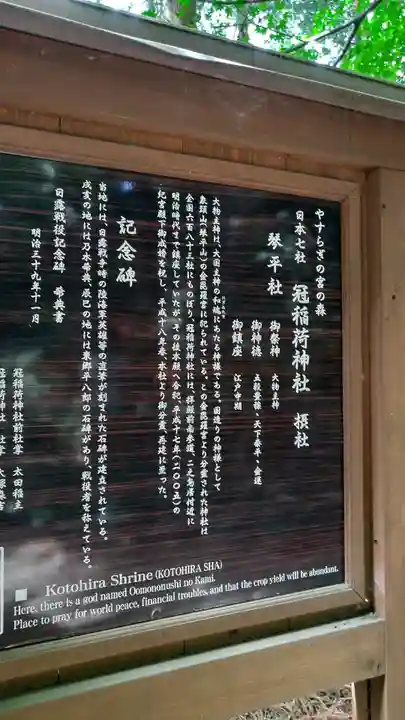 やすらぎの宮の森
日本七社 冠稲荷神社 摂社
琴平社
御祭神 大物主神
御神徳 五穀豊穣・天下泰平・金運
御鎮座 江戸中期
大物主神は、大国主神の和魂にあたる神様である。国造りの神様として
象頭山(琴平山)の金毘羅宮に祀られている。この金毘羅宮より分霊された神社は
全国六百八十三社にものぼり、冠稲荷神社には、拝殿前南参道、二之鳥居付近に
明治時代まで鎮座していたが、その後本殿へ合祀。平成十七年(二〇〇五)の
紀宮殿下御成婚を祝し、平成十八年春、本社より御分霊、再建に至った。
記念碑
当地には、日露戦争時の陸海軍英雄等の直筆が刻まれた石碑が建立されている。
戌亥の地には乃木希典、辰巳の地には東郷平八郎の石碑があり、戦役者を称えている。
日露戦役記念碑 希典書
明治三十九年十一月
冠稲荷神社前社掌 太田稲主
冠稲荷神社 社掌
Kotohira Shrine (KOTOHIRA SHA)
Here, there is a god named Oomononushi no Kami.
Place to pray for world peace, financial troubles, and that the crop yield will be abundant.